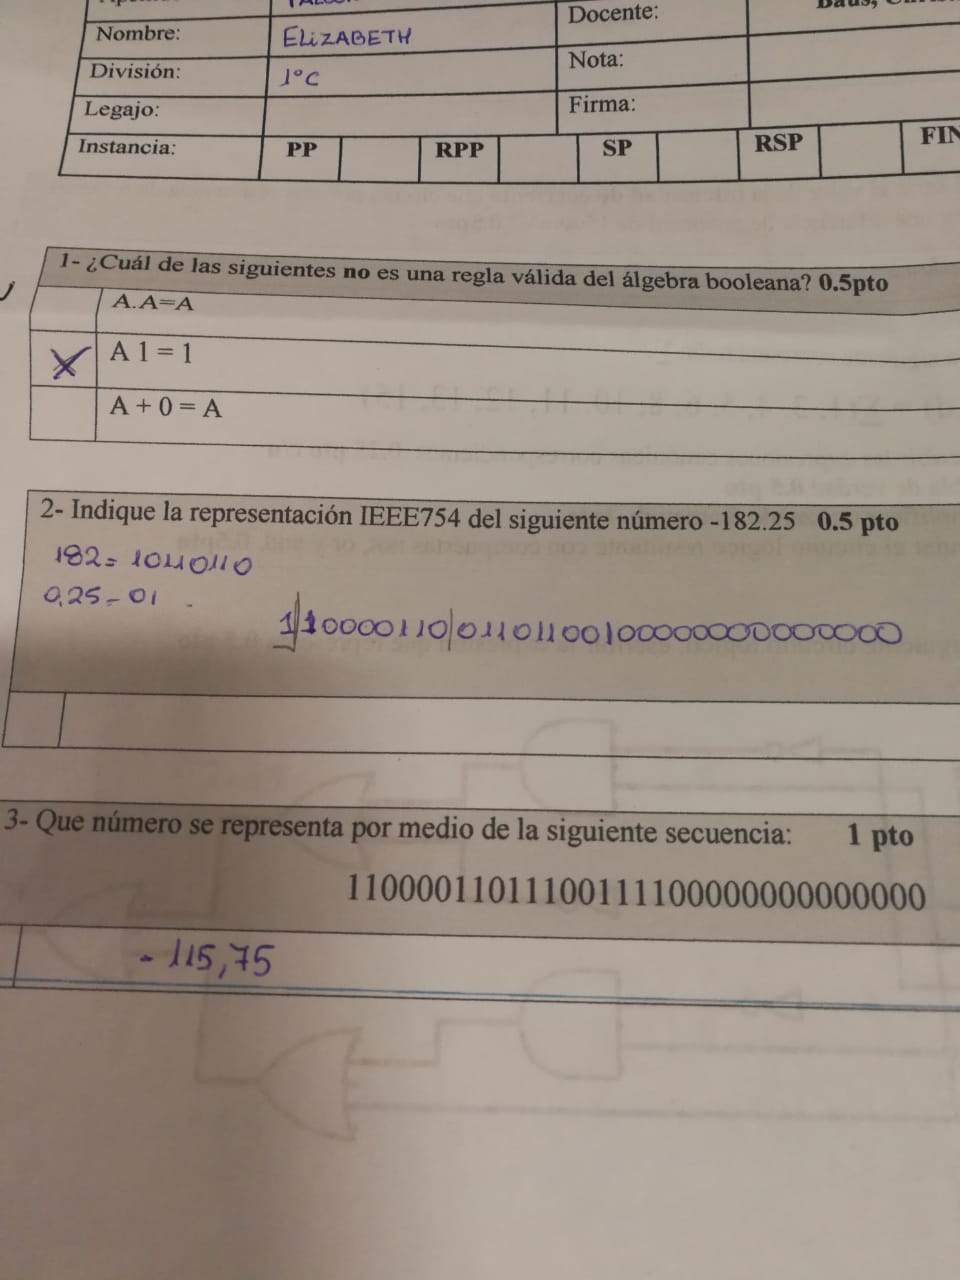 Docente:
Nombre:
ELIZABETH
División:
1°C
Nota:
Legajo:
Firma:
Instancia:
PP
RPP
SP
RSP
FIN
1- ¿Cuál de las siguientes no es una regla válida del álgebra booleana? 0.5pto
A.A=A
X
A 1 = 1
A + 0 = A
2- Indique la representación IEEE754 del siguiente número -182.25 0.5 pto
182= 10110110
0,25= 01
1|10000110|01101100100000000000000
3- Que número se representa por medio de la siguiente secuencia: 1 pto
11000011011100111100000000000000
- 115,75